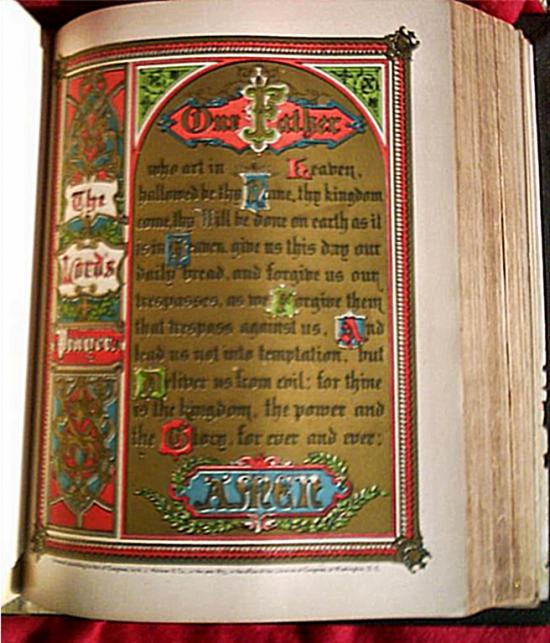 The
Lord's
Prayer
Our Father
who art in Heaven,
hallowed be thy Name, thy kingdom
come, thy Will be done on earth as it
is in Heaven, give us this day our
daily bread, and forgive us our
trespasses, as we Forgive them
that trespass against us. And
lead us not into temptation, but
Deliver us from evil: for thine
is the kingdom, the power and
the Glory, for ever and ever;
AMEN